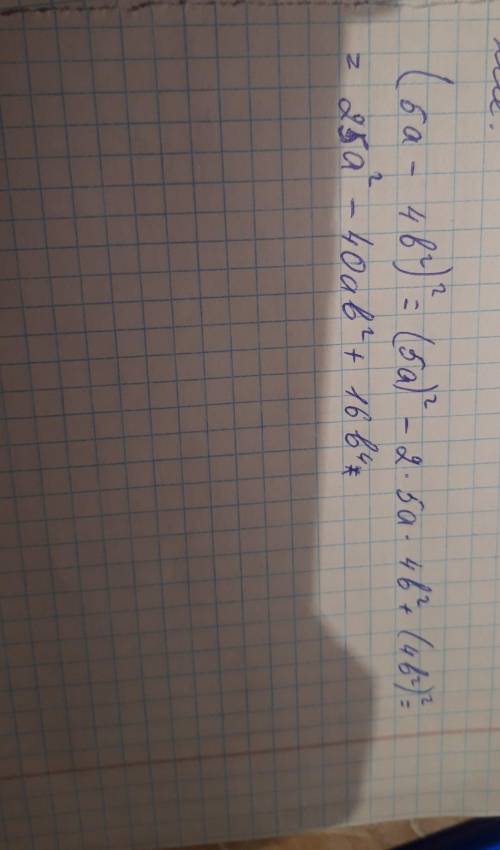 (5a - 4b²)² = (5a)² - 2 · 5a · 4b² + (4b²)² =
= 25a² - 40ab² + 16b⁴*